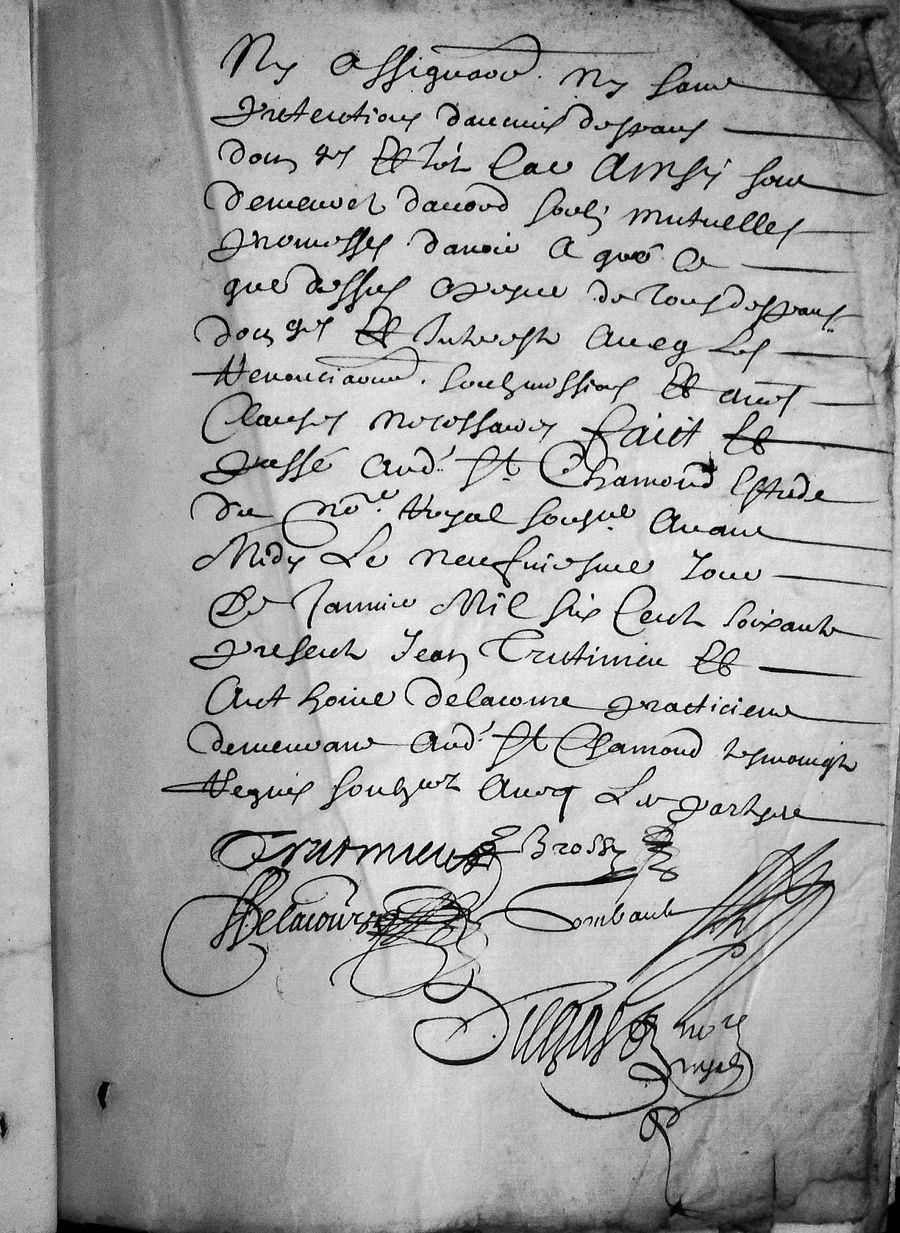 Ny assignaōn. Ny sans
pretentions d'aucuns despans
dom̄ges Et Int Car Ainsi sont
demeurez d'accord soubz mutuelles
promesses d'avoir a gré Ce
que dessus a peyne de tous despans
dom̄ges Et Interestz avecq Les
Renonciaōns. soubzmissions Et autres
Clauses necessaires faict Et
passé aud. St Chamond Estude
du nore. Royal soubzne. avant
Midy Le neufviesme Jour
De Janvier Mil six Cent soixante
presentz Jean Trutinieu Et
Anthoine delacome practiciens
demeurant aud. St Chamond tesmoingtz
Requis soubzez avecq Les partyes
Brossy
Delacour
Dugas nore
royal